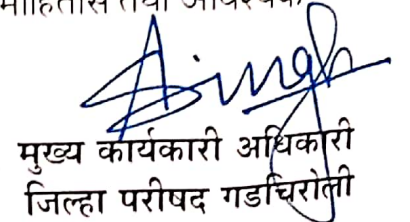 माहितीस तथा आवश्यक
मुख्य कार्यकारी अधिकारी
जिल्हा परीषद गडचिरोली